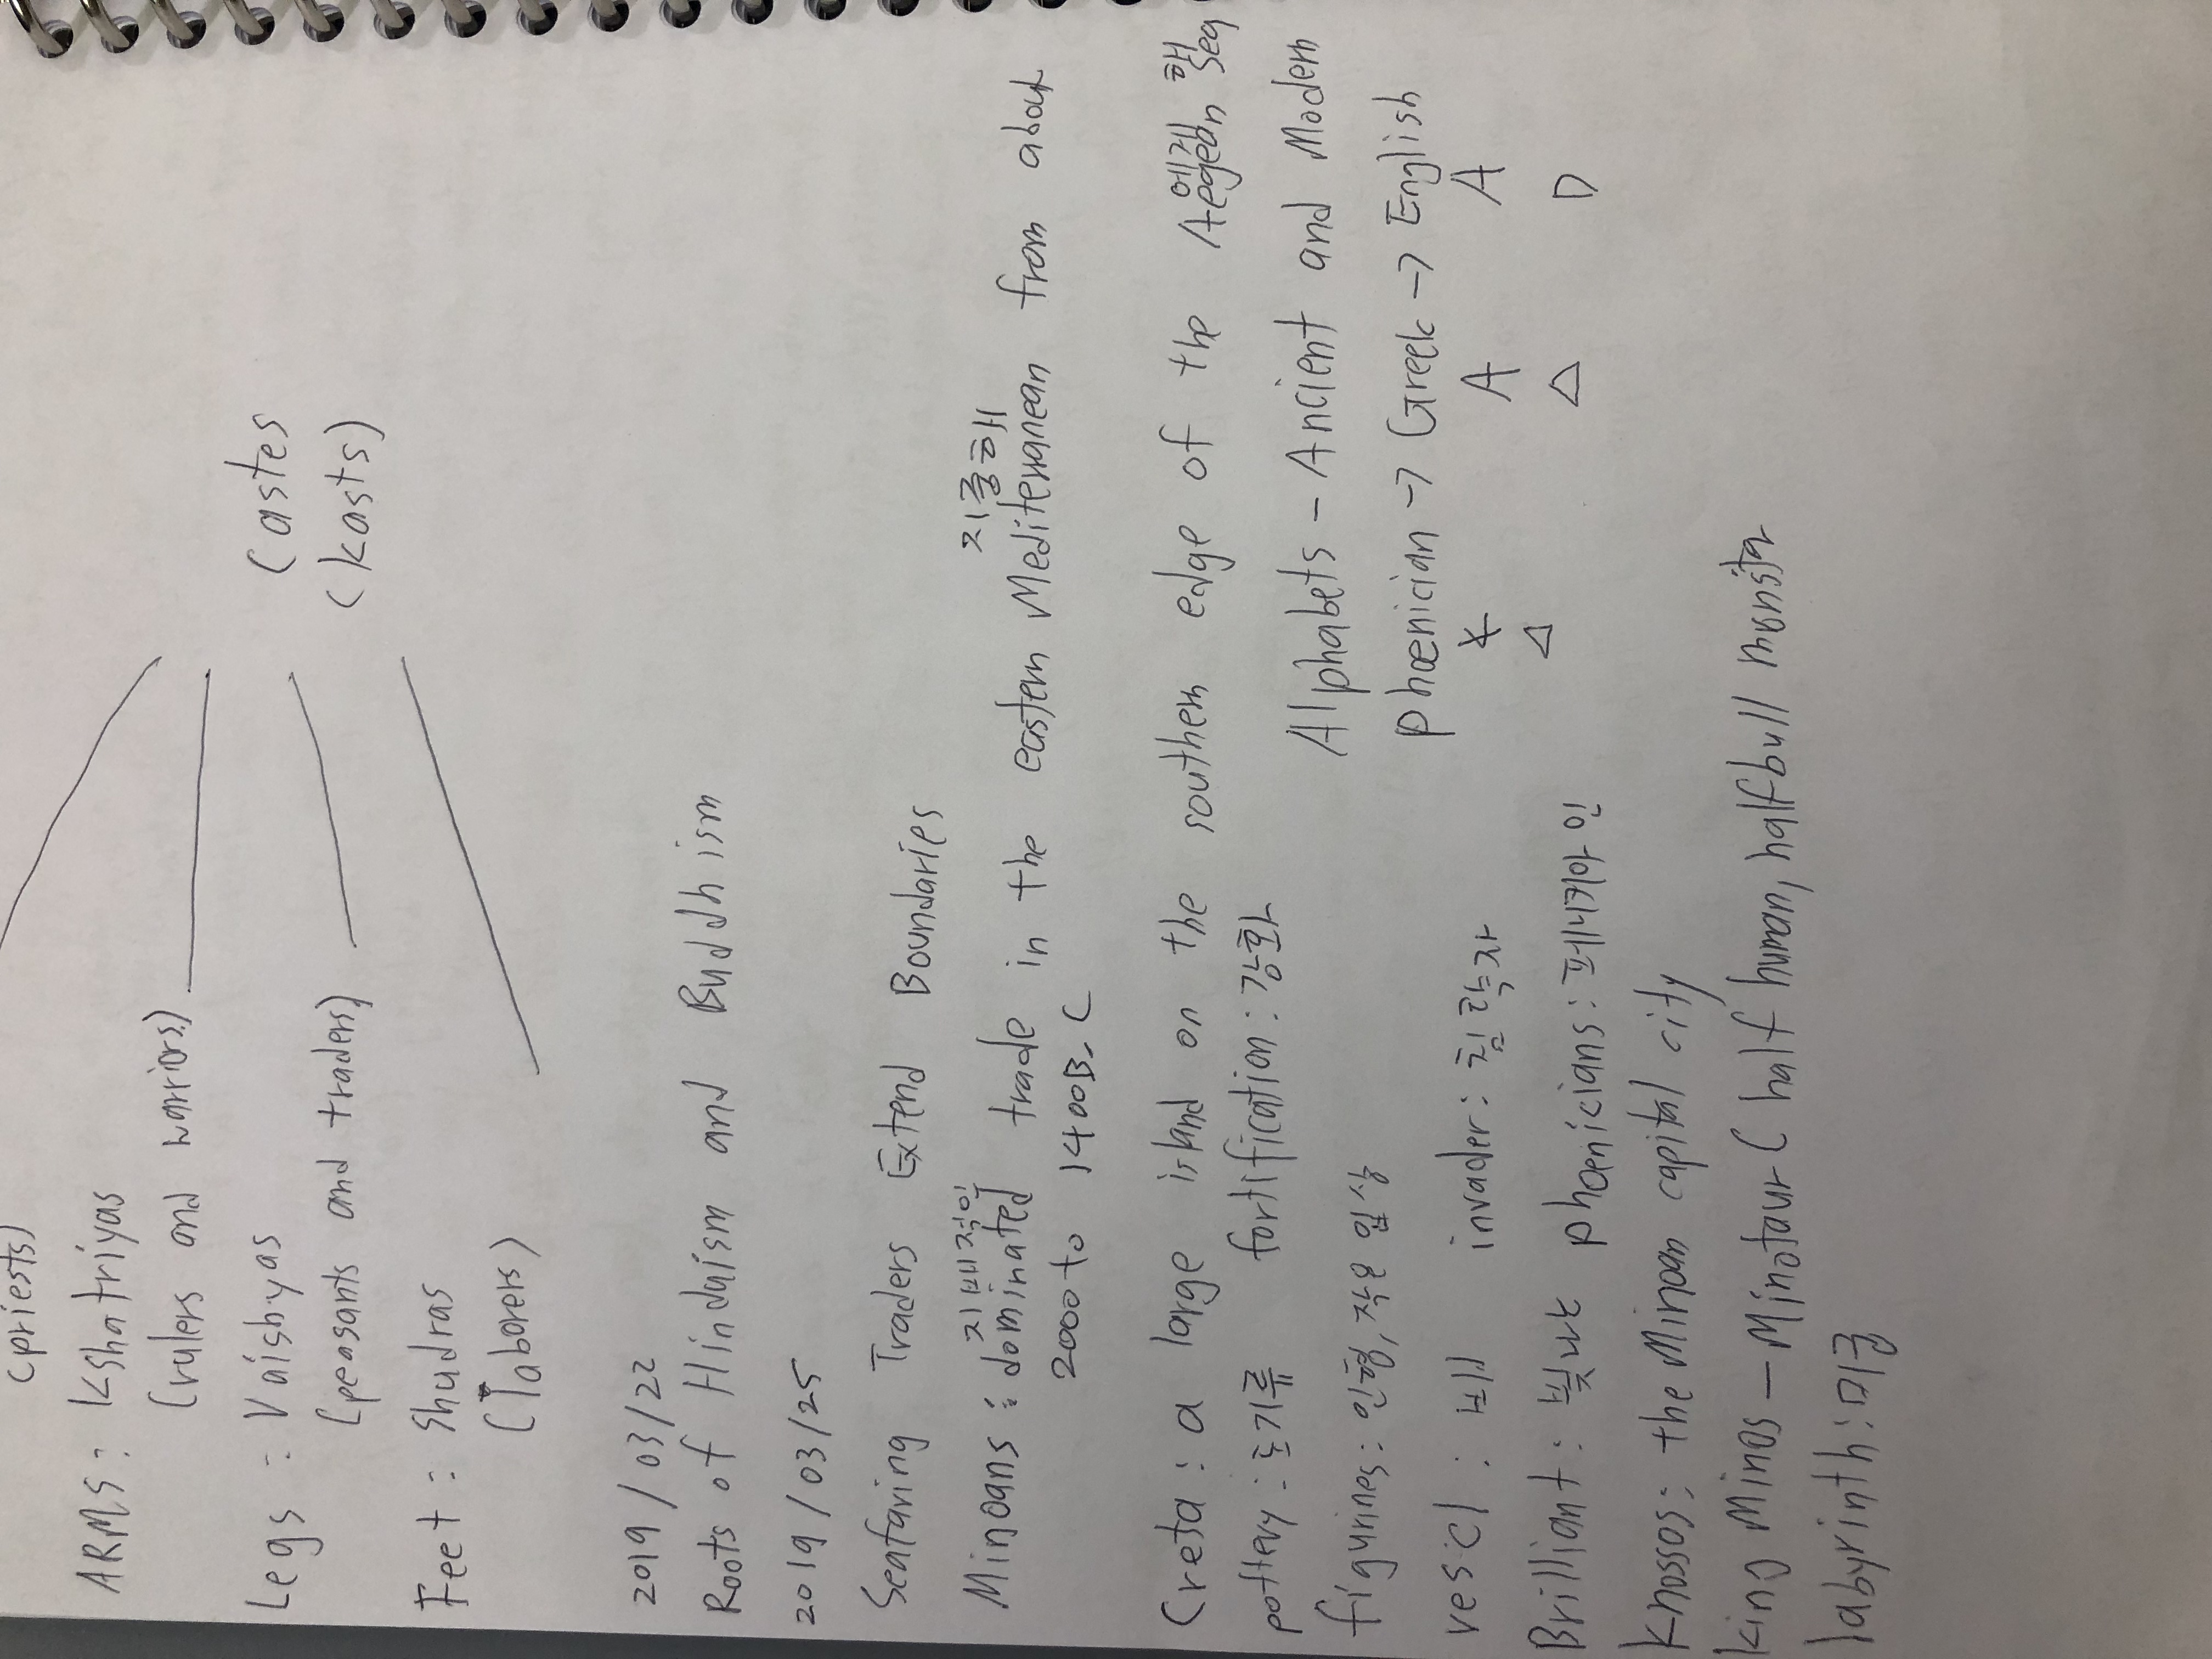 (priests)
ARMS : Kshatriyas
(rulers and warriors)
Legs : Vaishyas
(peasants and traders)
Castes
(kasts)
Feet : Shudras
(laborers)
2019/03/22
Roots of Hinduism and Buddhism
2019/03/25
Seafaring Traders Extend Boundaries
지배적인 지중해
Minoans : dominated trade in the eastern Mediterranean from about
2000 to 1400B.C
에게 해
Creta : a large island on the southern edge of the Aegean Sea
pottery : 도기류 fortification : 강화
Alphabets - Ancient and Modern
figurines : 인형, 작은 입상
phoenician → Greek → English
A A
vescl : 배 invader : 침략자
Δ Δ D
Brilliant : 빛나는 phoenicians : 페니키아 인
Knossos : the Minoan capital city
King Minos - Minotaur ( half human, half bull monster
labyrinth : 미궁